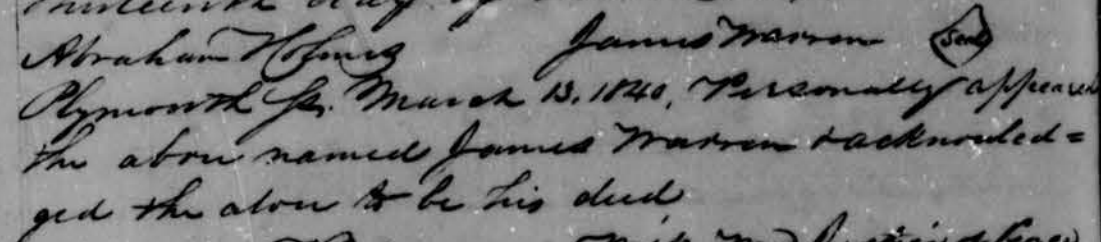 thirteenth day of
Abraham Holmes James Warren Seal
Plymouth Ss. March 13. 1840, Personally appeared
the above named James Warren & acknowled=
ged the above to be his deed